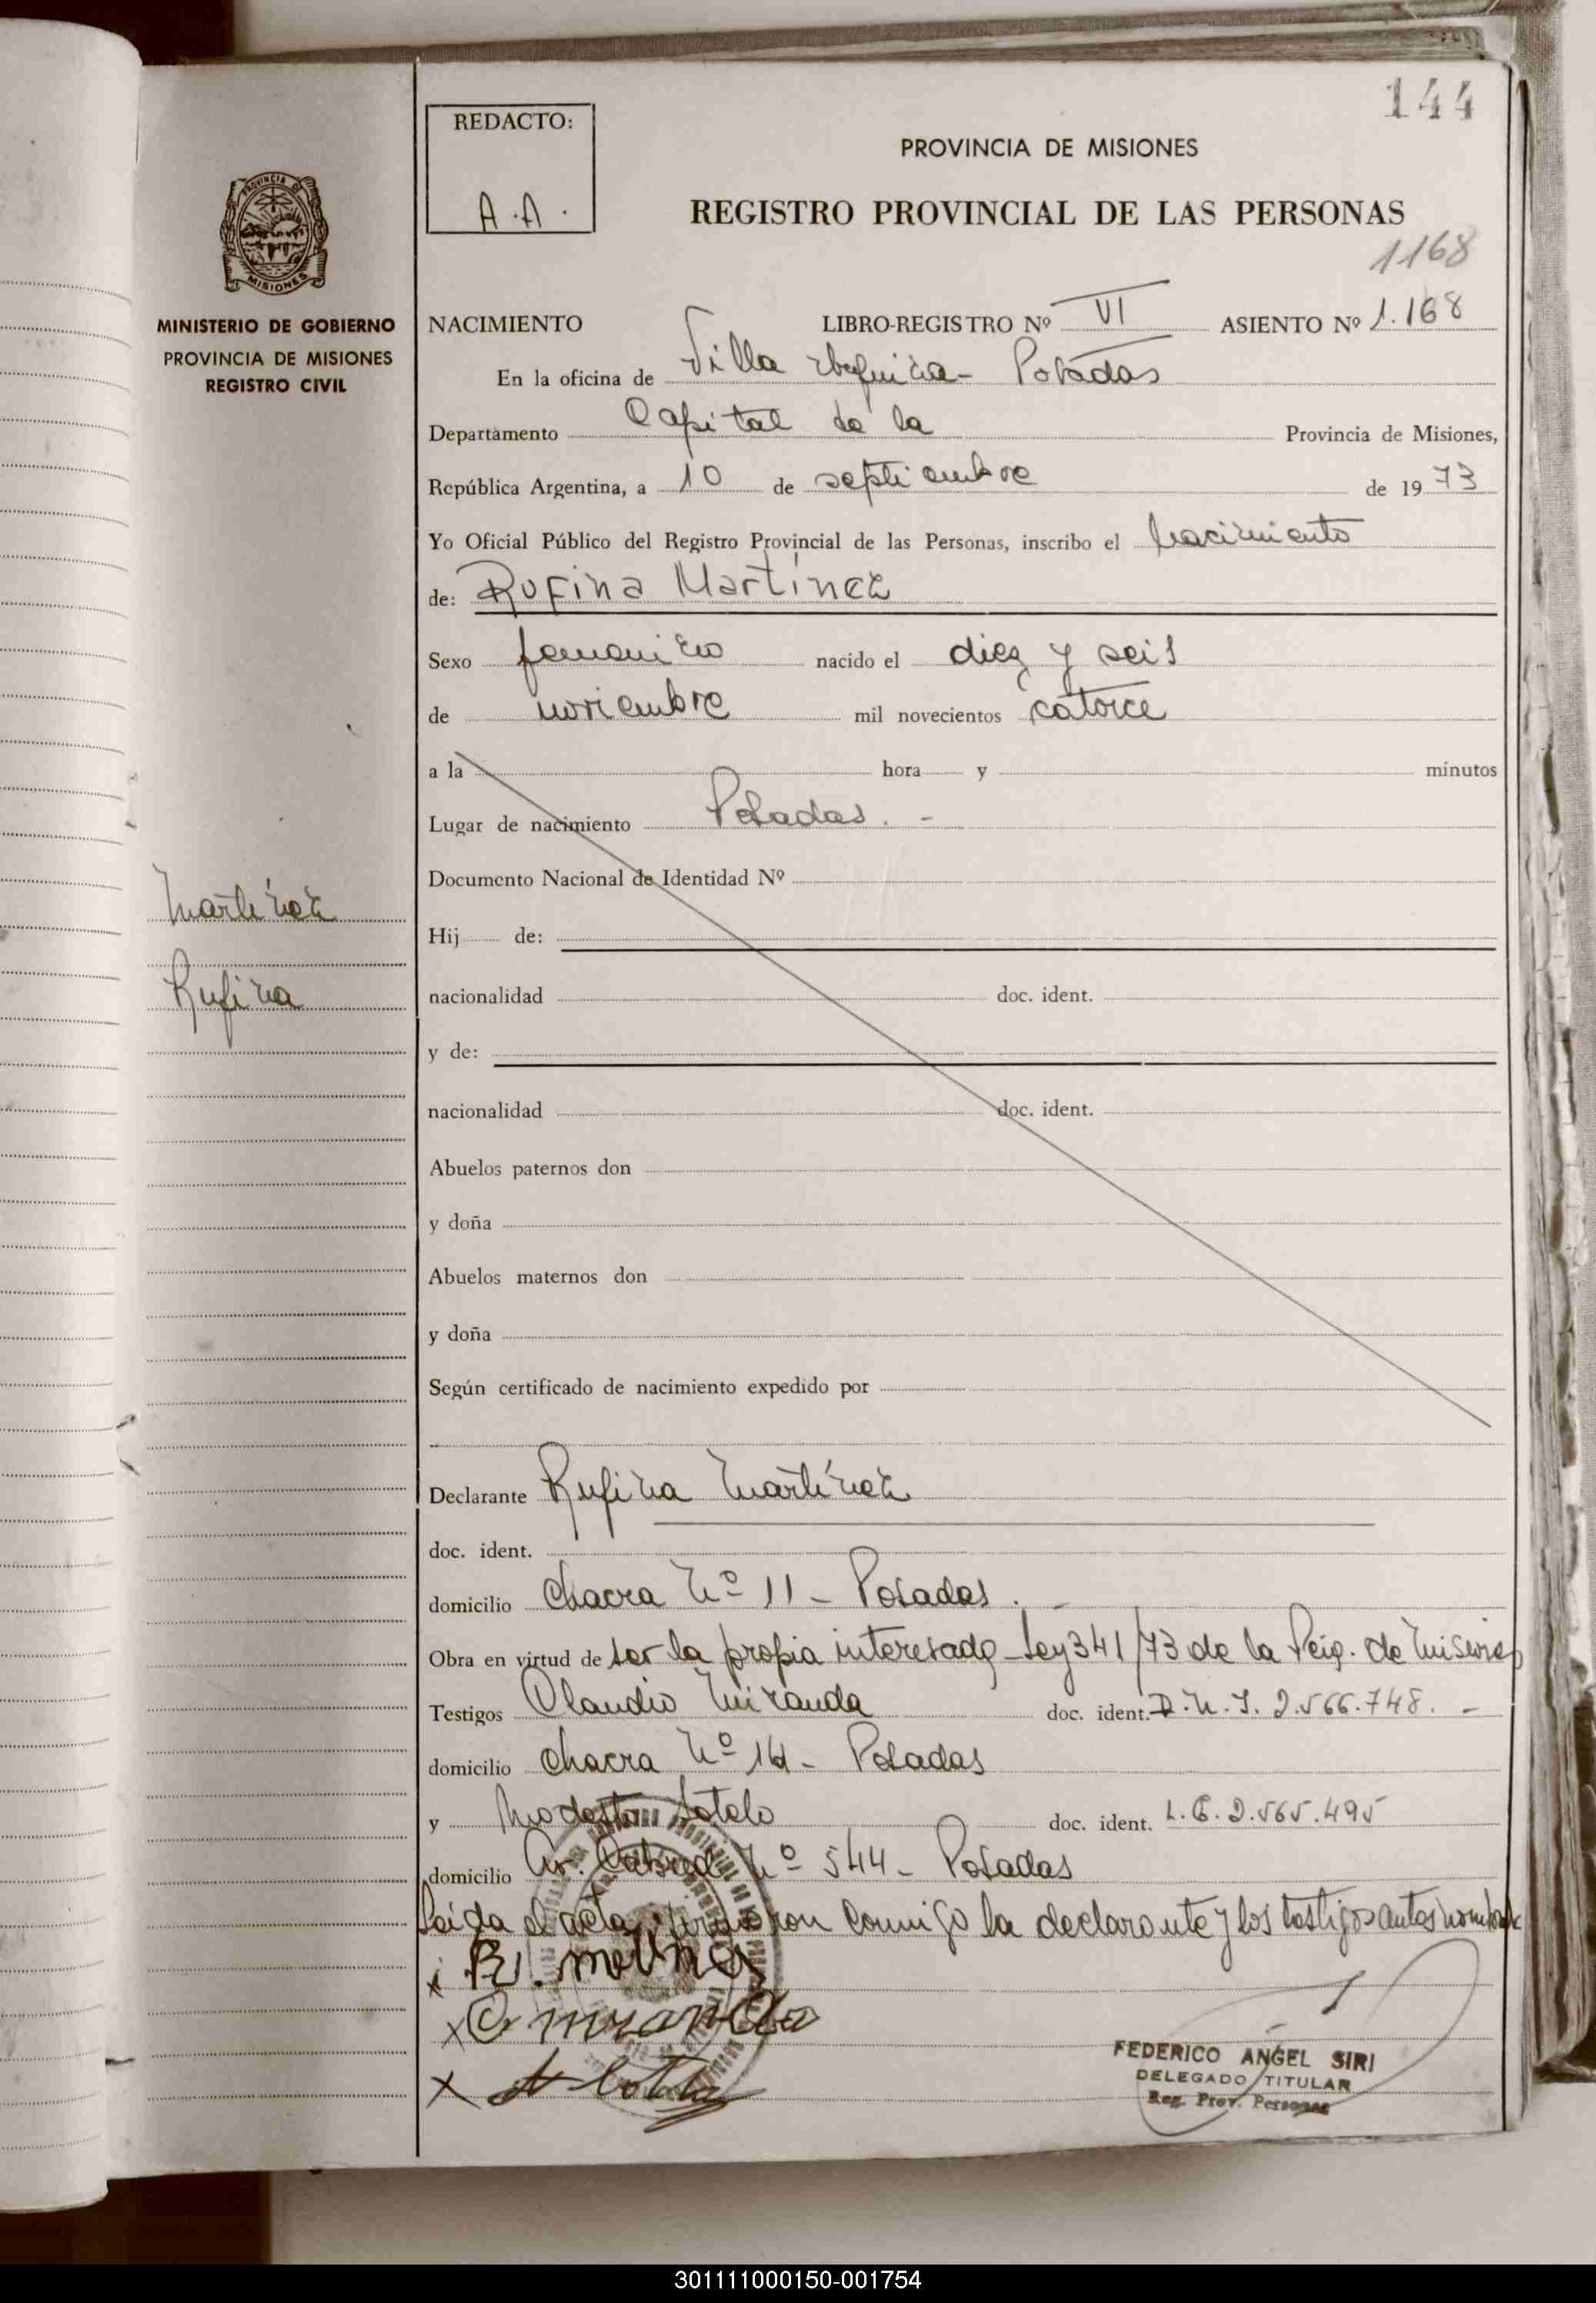 144
REDACTO:
A.A.
PROVINCIA DE MISIONES
REGISTRO PROVINCIAL DE LAS PERSONAS
1168
PROVINCIA DE
MISIONES
MINISTERIO DE GOBIERNO
PROVINCIA DE MISIONES
REGISTRO CIVIL
NACIMIENTO LIBRO-REGISTRO Nº VI ASIENTO Nº 1.168
En la oficina de Villa Posadas
Departamento Capital de la Provincia de Misiones,
República Argentina, a 10 de septiembre de 1973
Yo Oficial Público del Registro Provincial de las Personas, inscribo el nacimiento
de: Rufina Martínez
Sexo femenino nacido el diez y seis
de noviembre mil novecientos catorce
a la hora y minutos
Lugar de nacimiento Posadas. -
Documento Nacional de Identidad Nº
Martínez
Rufina
Hij de:
nacionalidad doc. ident.
y de:
nacionalidad doc. ident.
Abuelos paternos don
y doña
Abuelos maternos don
y doña
Según certificado de nacimiento expedido por
Declarante Rufina Martínez
doc. ident.
domicilio Chacra Nº 11 - Posadas. -
Obra en virtud de ser la propia interesada - Ley 341/73 de la de Misiones
Testigos Claudio Miranda doc. ident. D.N.I. 2.566.748. -
domicilio Chacra Nº 14 - Posadas
y Modesto Sotelo doc. ident. L.E. 2.565.495
domicilio Av. Nº 544 - Posadas
Leída el acta, firmaron conmigo la declarante y los testigos antes
x R.
x C miranda
x
FEDERICO ANGEL SIRI
DELEGADO TITULAR
Reg. Prov. Personas
301111000150-001754